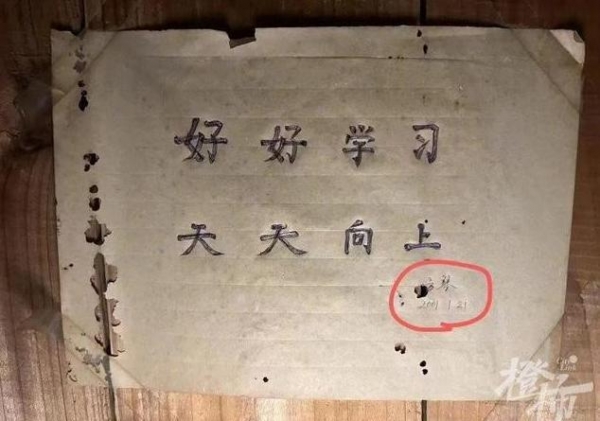 好好学习
天天向上
2001 1 21
橙柿
City Link